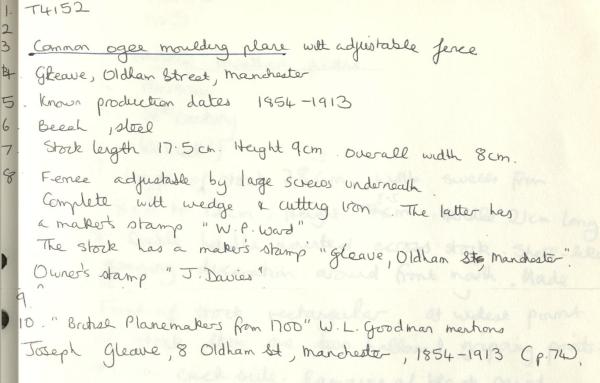 1. T4152
2
3 Common ogee moulding plane with adjustable fence
4. Gleave, Oldham Street, Manchester
5. Known production dates 1854-1913
6. Beech, steel
7. Stock length 17.5cm. Height 9cm. Overall width 8cm.
8 Fence adjustable by large screws underneath.
Complete with wedge & cutting iron. The latter has
a maker's stamp "W.P. Ward"
The stock has a maker's stamp "Gleave, Oldham St, Manchester".
Owner's stamp "J. Davies"
9.
10. "British Planemakers from 1700" W.L. Goodman mentions
Joseph Gleave, 8 Oldham St, Manchester, 1854-1913 (p.74).